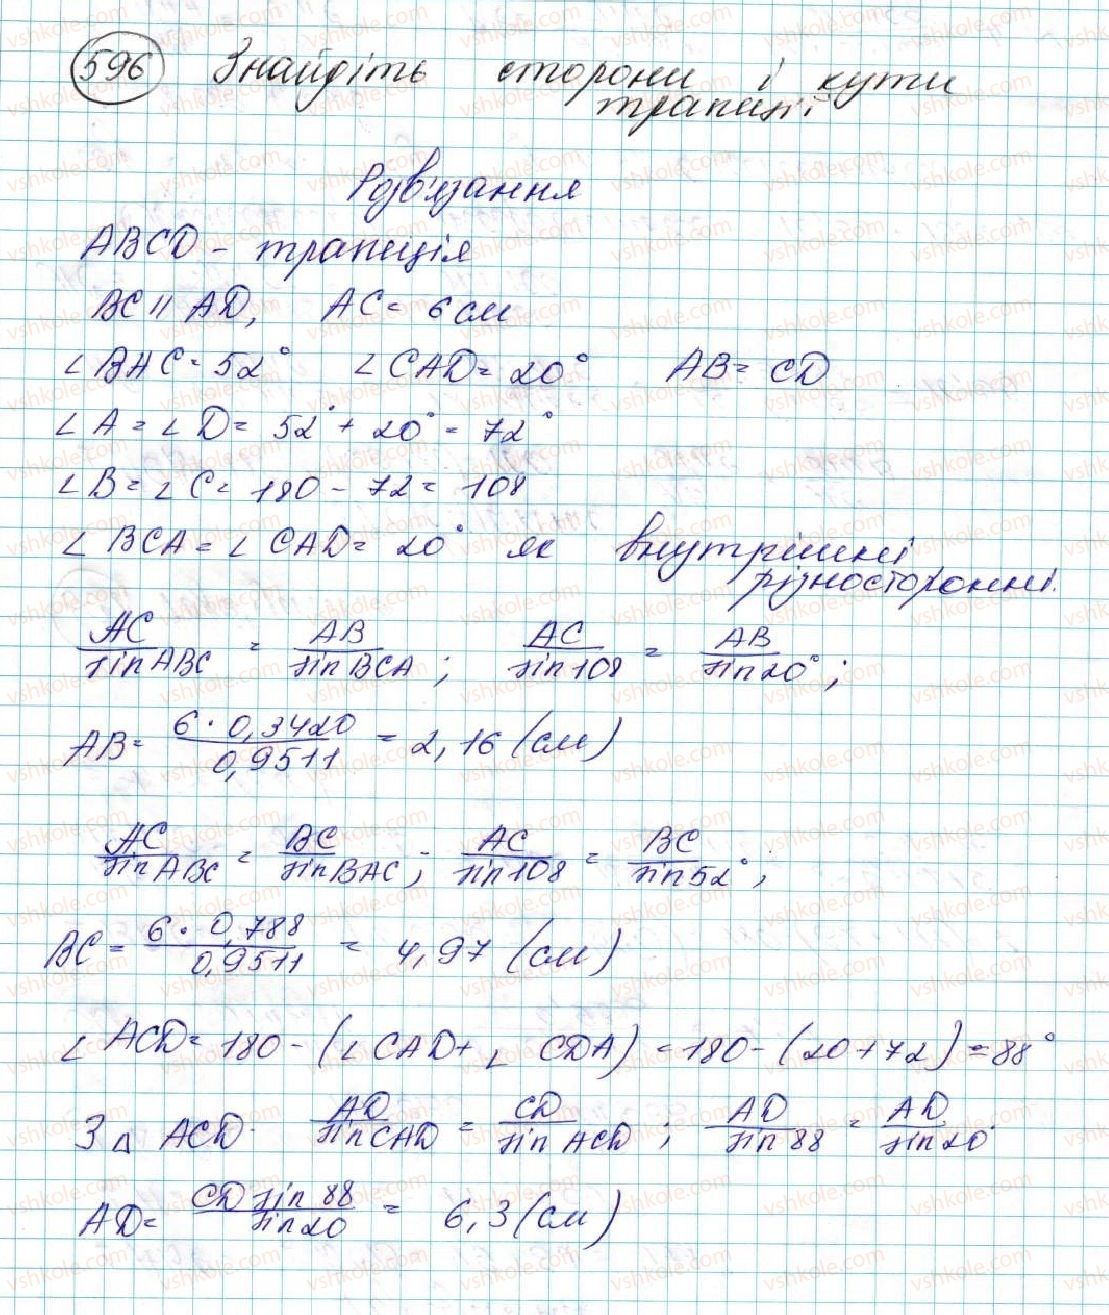 596 Знайдіть сторони і кути
трапеції
Розв'язання
ABCD - трапеція
BC || AD, AC = 6 см
∠BAC = 52° ∠CAD = 20° AB = CD
∠A = ∠D = 52° + 20° = 72°
∠B = ∠C = 180 - 72 = 108
∠BCA = ∠CAD = 20° як внутрішні
різносторонні.
AC/sin ABC = AB/sin BCA ; AC/sin 108 = AB/sin 20° ;
AB = 6 · 0,3420/0,9511 = 2,16 (см)
AC/sin ABC = BC/sin BAC ; AC/sin 108 = BC/sin 52° ;
BC = 6 · 0,788/0,9511 = 4,97 (см)
∠ACD = 180 - (∠CAD + ∠CDA) = 180 - (20 + 72) = 88°
З △ ACD. AD/sin CAD = CD/sin ACD ; AD/sin 88 = AD/sin 20.
AD = CD sin 88/sin 20 = 6,3 (см)